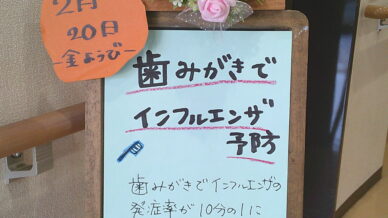 2月
20日
-金ようび-
歯みがきで
インフルエンザ
予防
歯みがきでインフルエンザの
発症率が10分の1に